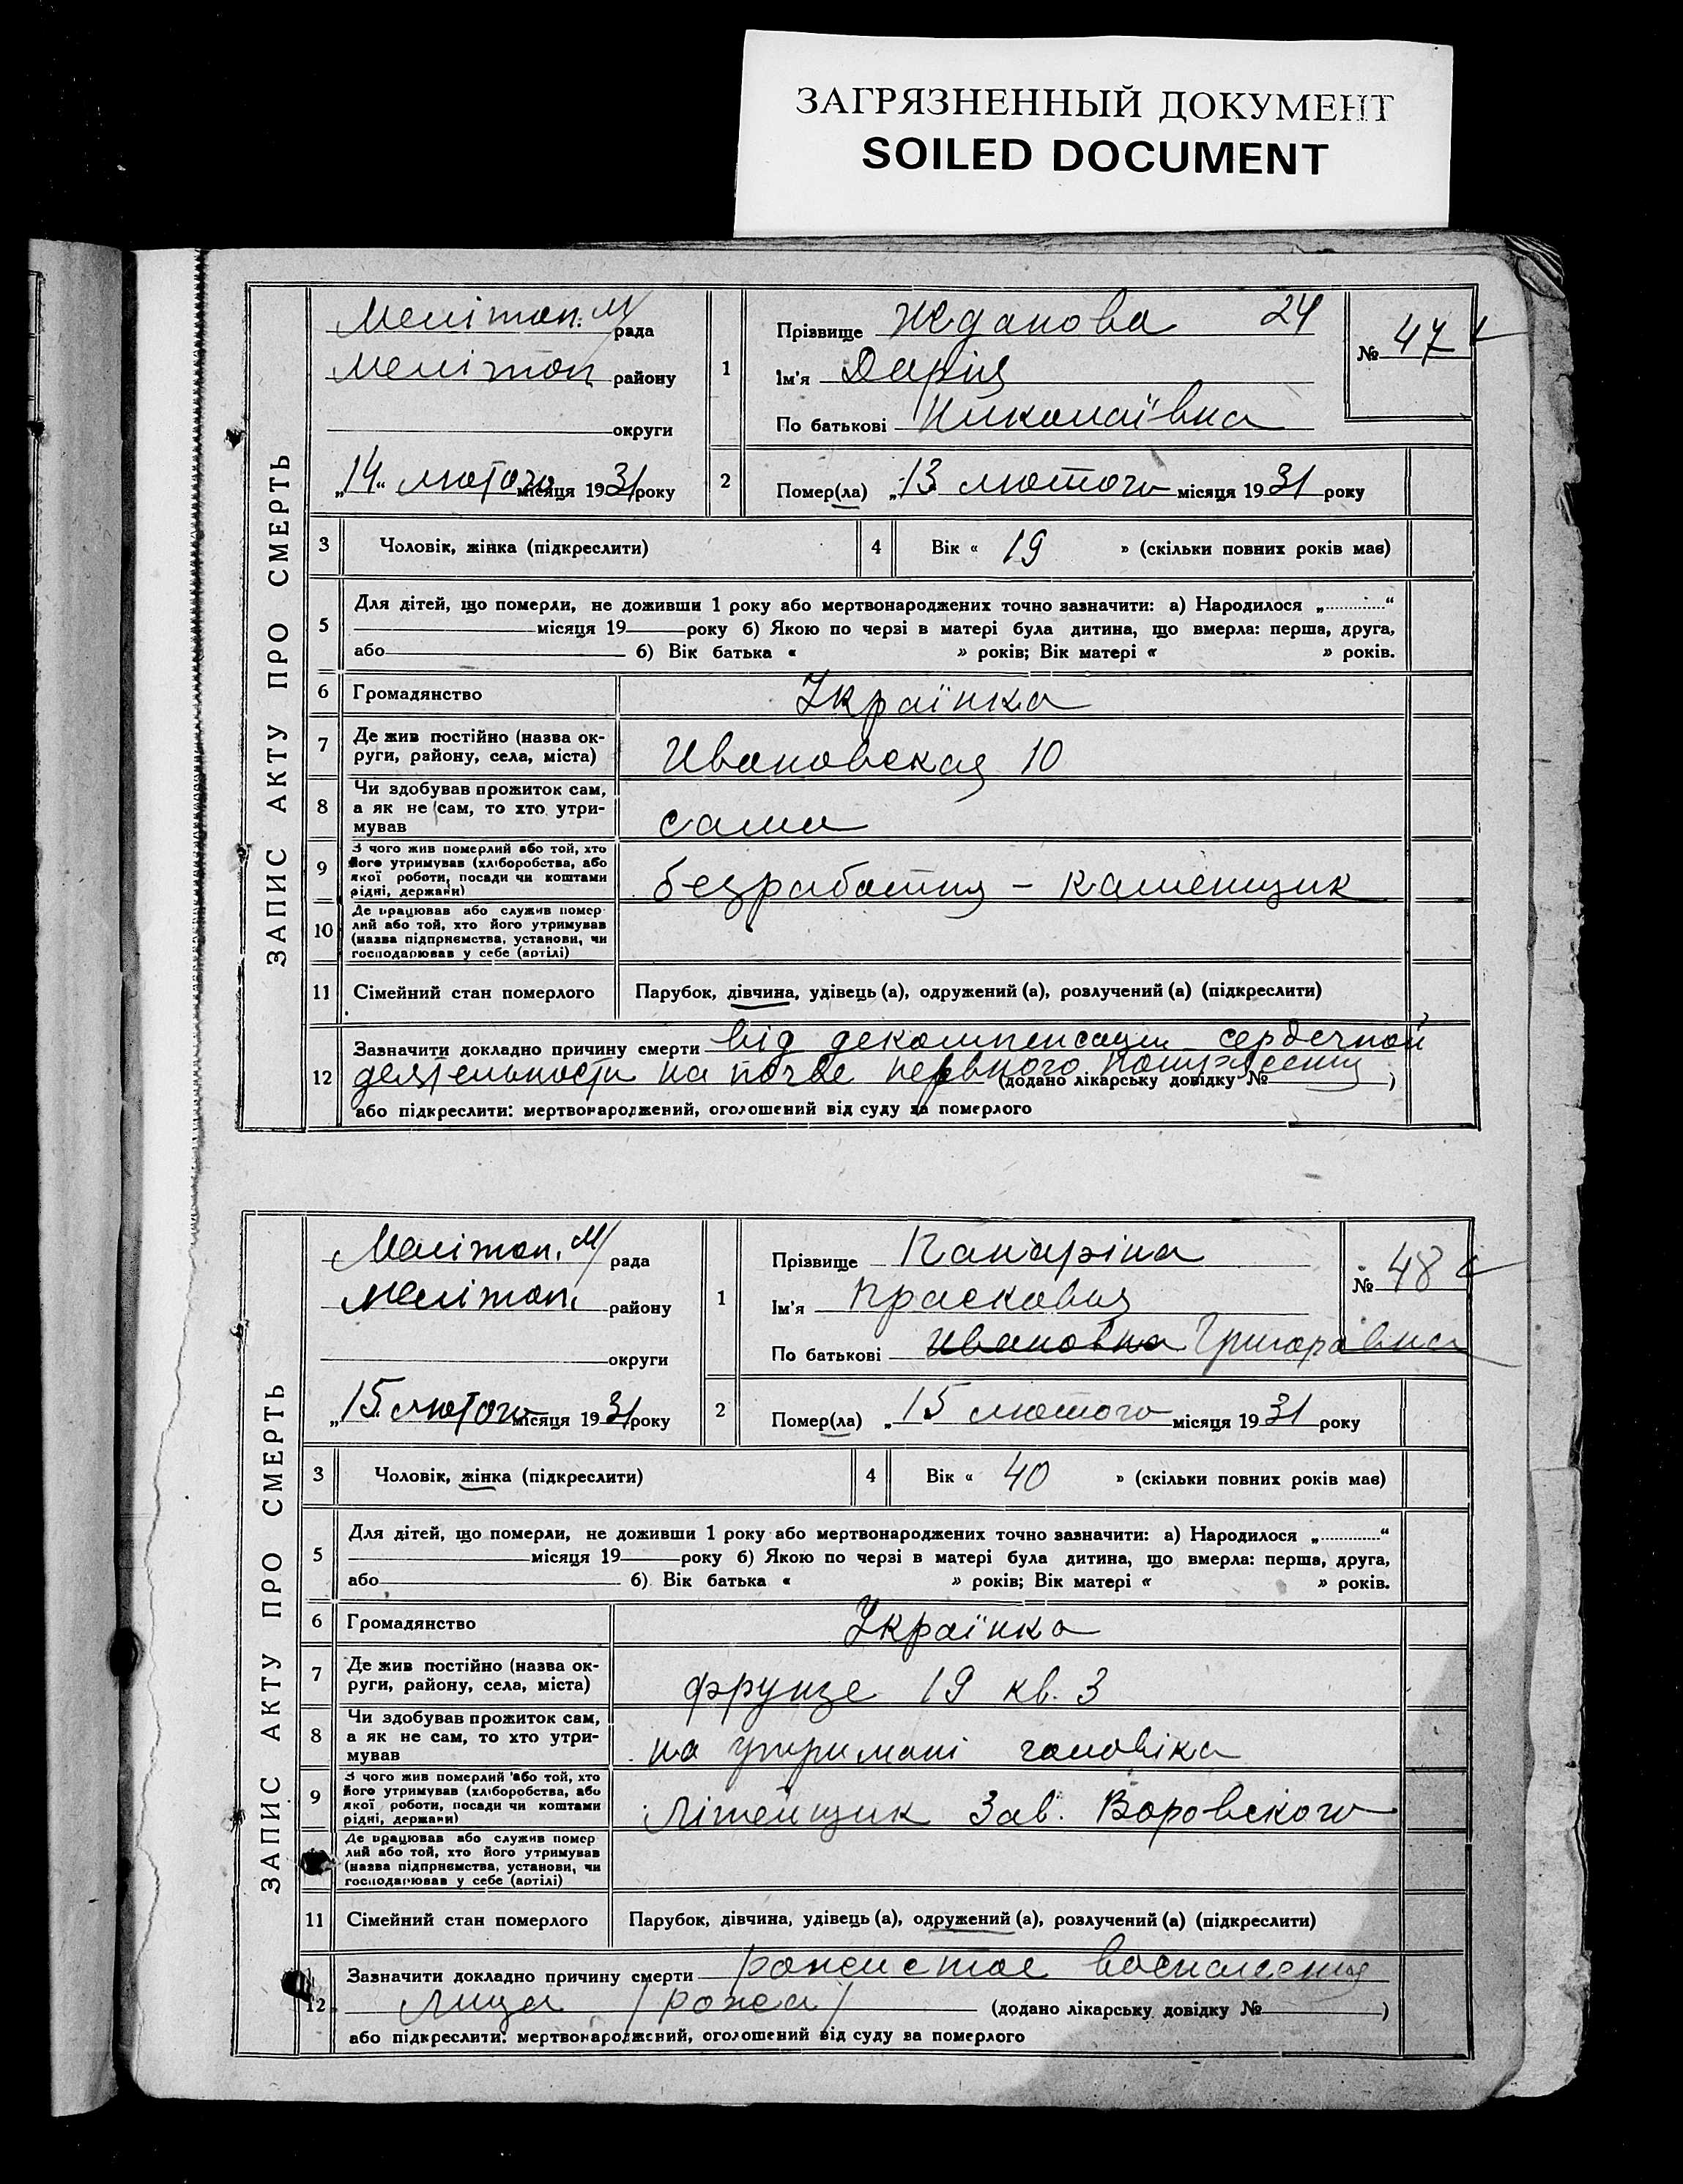 ЗАГРЯЗНЕННЫЙ ДОКУМЕНТ
SOILED DOCUMENT
ЗАПИС АКТУ ПРО СМЕРТЬ
Мелітоп. М/ рада
Мелітоп району
округи
„14“ лютого місяця 1931 року
1
Прізвище Жданова 24
Ім'я Дарія
По батькові Николаївна
№ 47
2
Помер(ла) „13 лютого місяця 1931 року
3 Чоловік, жінка (підкреслити)
4 Вік « 19 » (скільки повних років має)
5
Для дітей, що померли, не доживши 1 року або мертвонароджених точно зазначити: а) Народилося „............“
місяця 19 року б) Якою по черзі в матері була дитина, що вмерла: перша, друга,
або б) Вік батька « » років; Вік матері « » років.
6 Громадянство Українка
7
Де жив постійно (назва ок-
руги, району, села, міста)
Ивановская 10
8
Чи здобував прожиток сам,
а як не сам, то хто утри-
мував
сама
9
З чого жив померлий або той, хто
його утримував (хліборобства, або
якої роботи, посади чи коштами
рідні, держави)
безработня - каменщик
10
Де працював або служив помер
лий або той, хто його утримував
(назва підприємства, установи, чи
господарював у себе (артілі)
11 Сімейний стан померлого Парубок, дівчина, удівець (а), одружений (а), розлучений (а) (підкреслити)
12
Зазначити докладно причину смерти від декомпенсации сердечной
деятельности на почве нервного
(додано лікарську довідку № )
або підкреслити: мертвонароджений, оголошений від суду за померлого
ЗАПИС АКТУ ПРО СМЕРТЬ
Мелітоп. М/ рада
Мелітоп. району
округи
„15 лютого місяця 1931 року
1
Прізвище Канаріна
Ім'я Прасковия
По батькові Ивановна Григоровна
№ 48
2
Помер(ла) „15 лютого місяця 1931 року
3 Чоловік, жінка (підкреслити)
4 Вік « 40 » (скільки повних років має)
5
Для дітей, що померли, не доживши 1 року або мертвонароджених точно зазначити: а) Народилося „............“
місяця 19 року б) Якою по черзі в матері була дитина, що вмерла: перша, друга,
або б) Вік батька « » років; Вік матері « » років.
6 Громадянство Українка
7
Де жив постійно (назва ок-
руги, району, села, міста)
Фрунзе 19 кв. 3
8
Чи здобував прожиток сам,
а як не сам, то хто утри-
мував
на утримані чоловіка
9
З чого жив померлий або той, хто
його утримував (хліборобства, або
якої роботи, посади чи коштами
рідні, держави)
Літейщик Зав. Воровского
Де працював або служив помер
лий або той, хто його утримував
(назва підприємства, установи, чи
господарював у себе (артілі)
11 Сімейний стан померлого Парубок, дівчина, удівець (а), одружений (а), розлучений (а) (підкреслити)
12
Зазначити докладно причину смерти рожистое воспаления
лица /рожа/ (додано лікарську довідку № )
або підкреслити: мертвонароджений, оголошений від суду за померлого